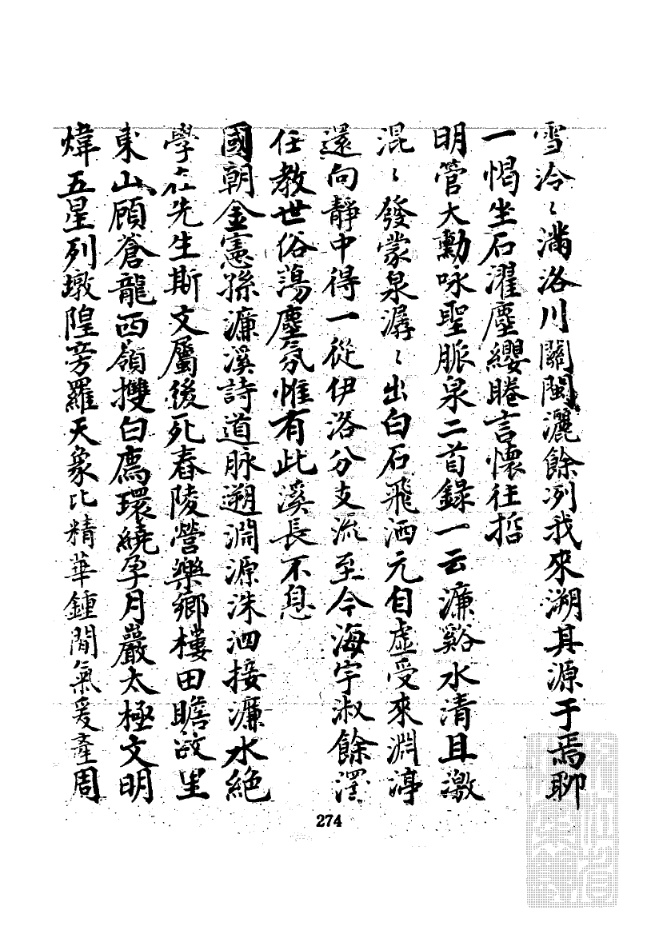 雪泠〻滿洛川關閩灑餘冽我來溯其源于焉聊
一愒坐石濯塵纓睠言懷往哲
明管大勳咏聖脈泉二首錄一云濂谿水清且激
混〻發蒙泉潺〻出白石飛洒元自虛受來淵渟
還向靜中得一從伊洛分支流至今海宇淑餘澤
任教世俗蕩塵氛惟有此溪長不息
國朝金憲孫濂溪詩道脉遡淵源洙泗接濂水絕
學在先生斯文屬後死舂陵營樂鄉樓田瞻故里
東山顧蒼龍西嶺捜白鷹環繞孕月巖太極文明
煒五星列墩隍旁羅天象比精華鍾閒氣爰產周
274